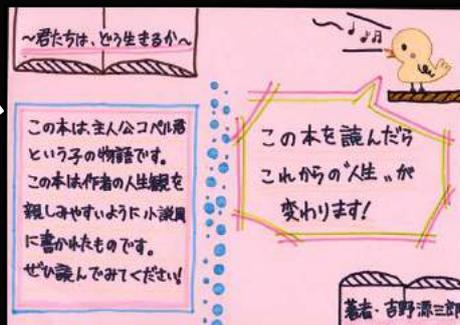 〜君たちは、どう生きるか〜
この本は、主人公コペル君
という子の物語です。
この本は作者の人生観を
親しみやすいように小説風
に書かれたものです。
ぜひ読んでみてください!
この本を読んだら
これからの〝人生〟が
変わります!
著者・吉野源三郎